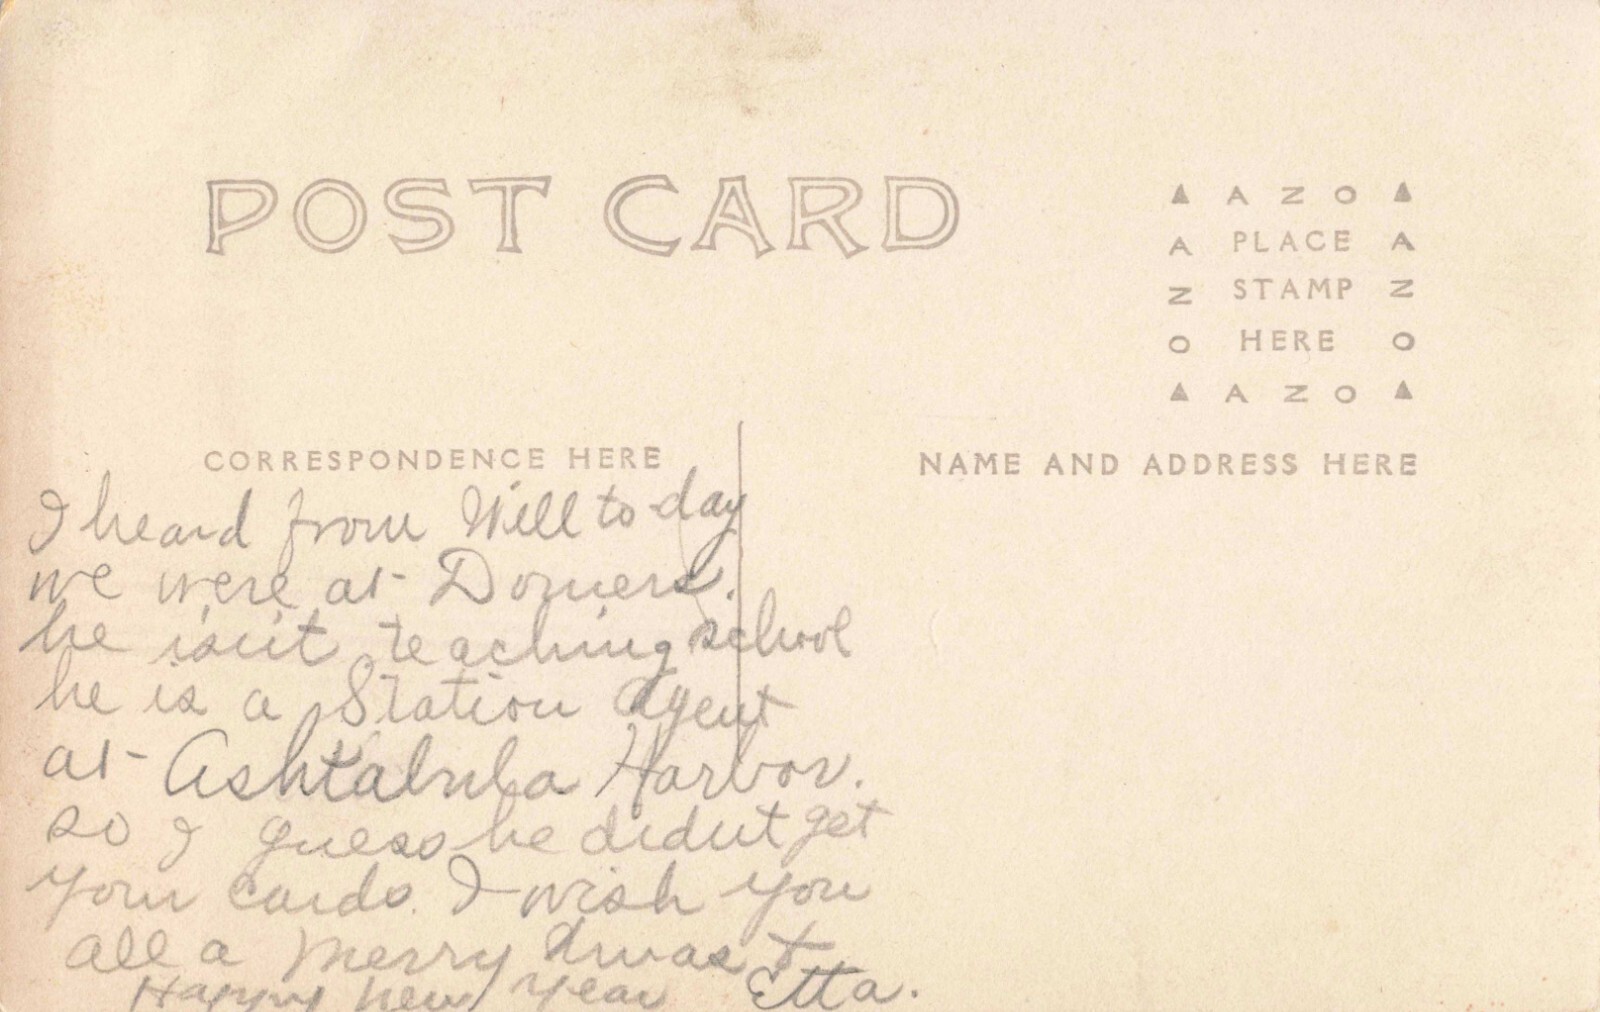 POST CARD
▲ A Z O ▲
A PLACE A
Z STAMP Z
O HERE O
▲ A Z O ▲
CORRESPONDENCE HERE
NAME AND ADDRESS HERE
I heard from Will to-day
we were at Domers.
he isn't teaching school
he is a Station Agent
at Ashtabula Harbor.
so I guess he didn't get
your cards. I wish you
all a Merry Xmas &
Happy New Year Etta.